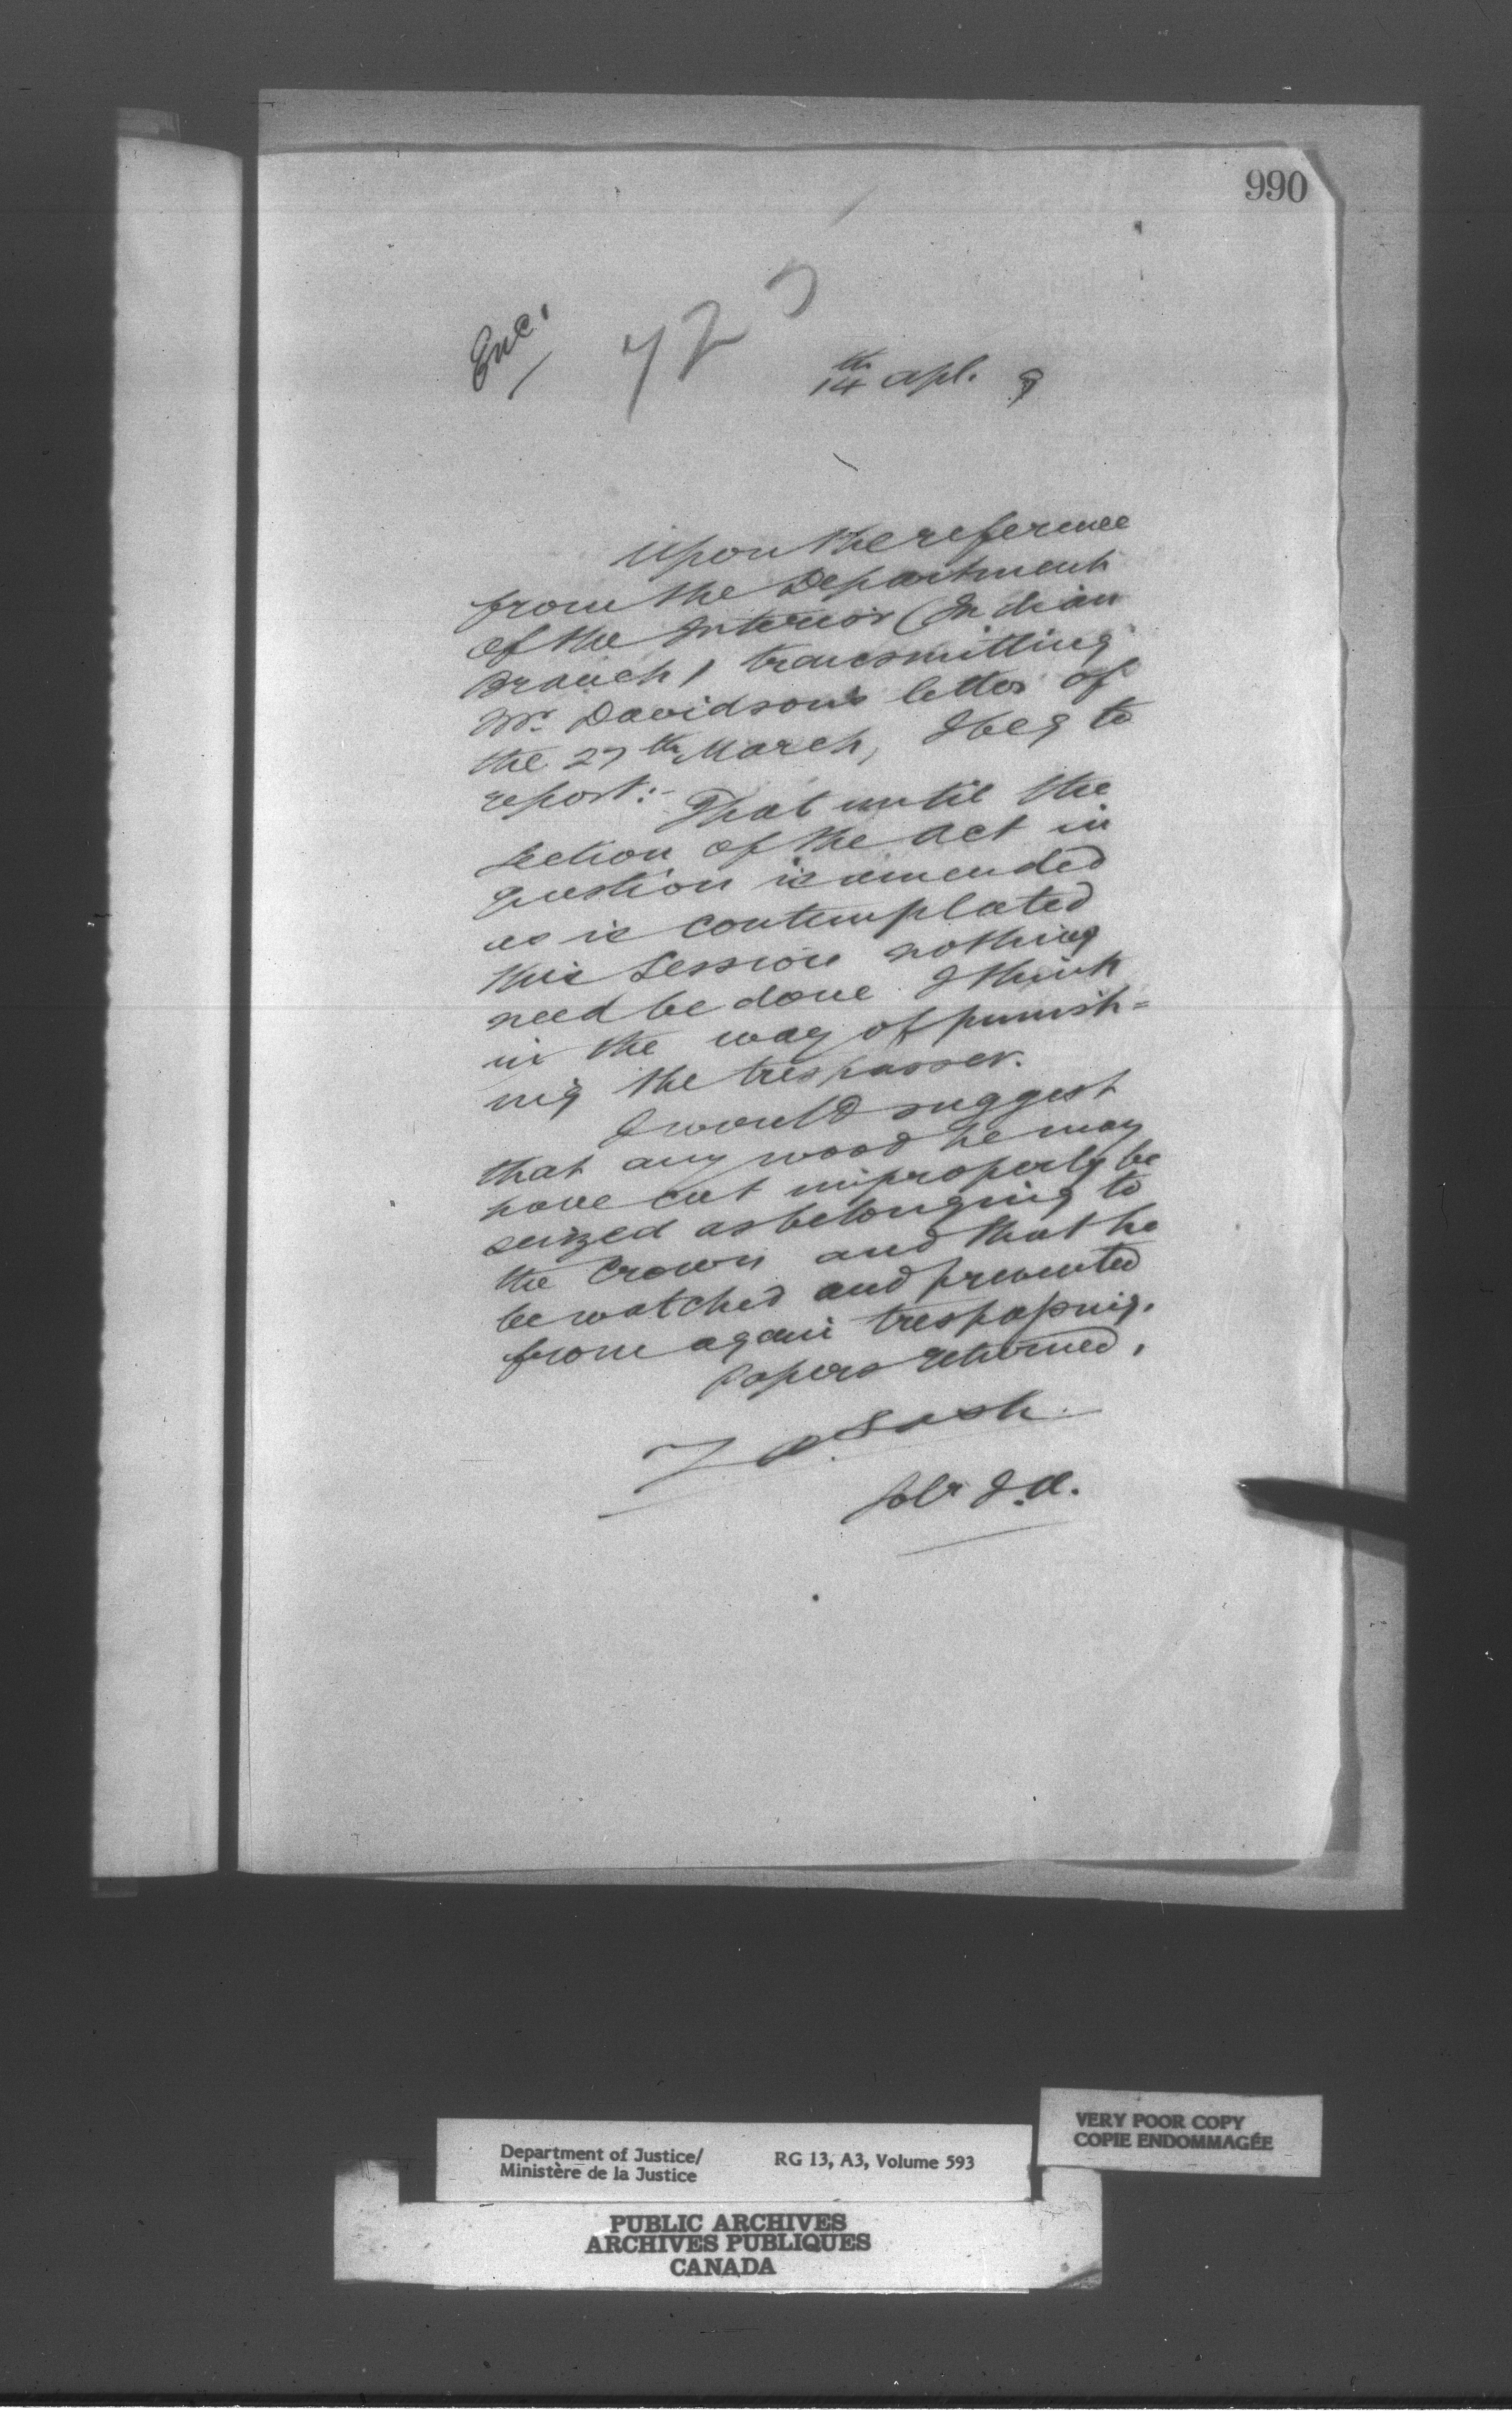 990
Enc.
14th Apl. 9
Upon the reference
from the Department
of the Interior (Indian
Branch) transmitting
Mr. Davidson's letter of
the 27th March, I beg to
report:-
That until the
section of the Act in
question is amended
as is contemplated
this Session nothing
need be done I think
in the way of punish=
ing the trespasser.
I would suggest
that any wood he may
have cut improperly be
seized as belonging to
the Crown and that he
be watched and prevented
from again trespassing.
Papers returned.
Z A Lash
Solr I.A.
VERY POOR COPY
COPIE ENDOMMAGÉE
Department of Justice/
Ministère de la Justice
RG 13, A3, Volume 593
PUBLIC ARCHIVES
ARCHIVES PUBLIQUES
CANADA